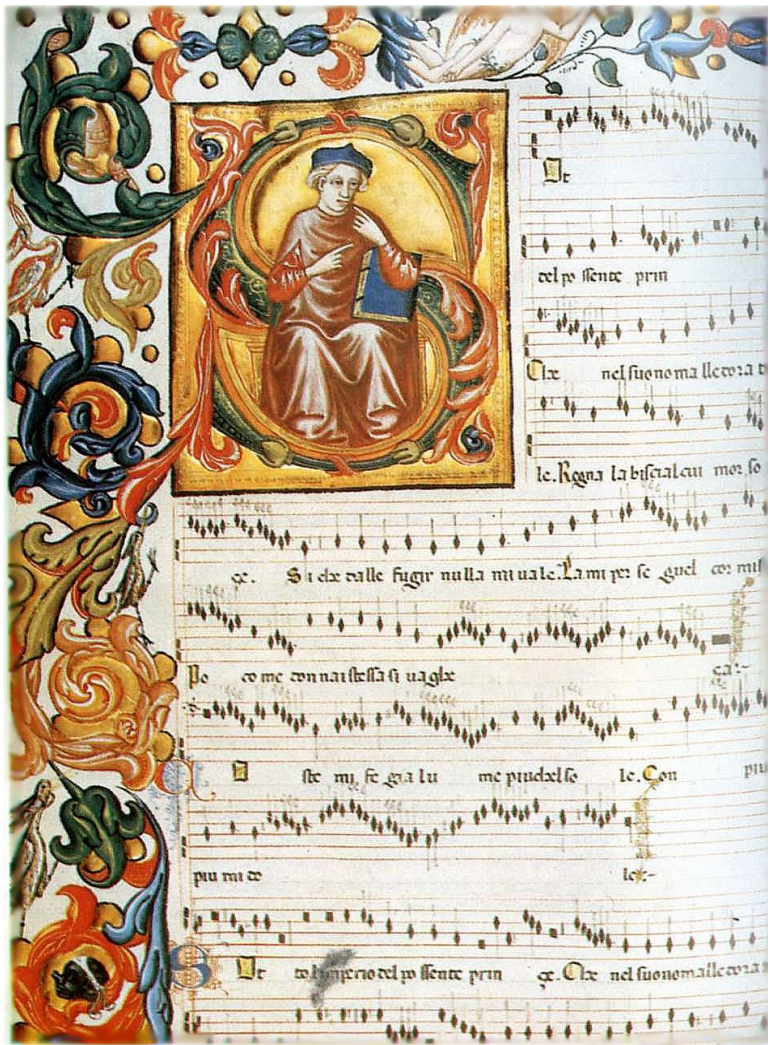 Ot
del po ssente prin
Che nel suo no ma lle dora
le. Regna la biscia al cui mor so
çe. Si che dalle fugir nulla mi uale. La mi per se guel cor
Po co me donna i stessa si uaghe ça:-
ste mi se gia lu me piu chel so le. Con piu
piu mi do le:-
S Ot to limperio del po ssente prin çe. Che nel suo no ma lle dora